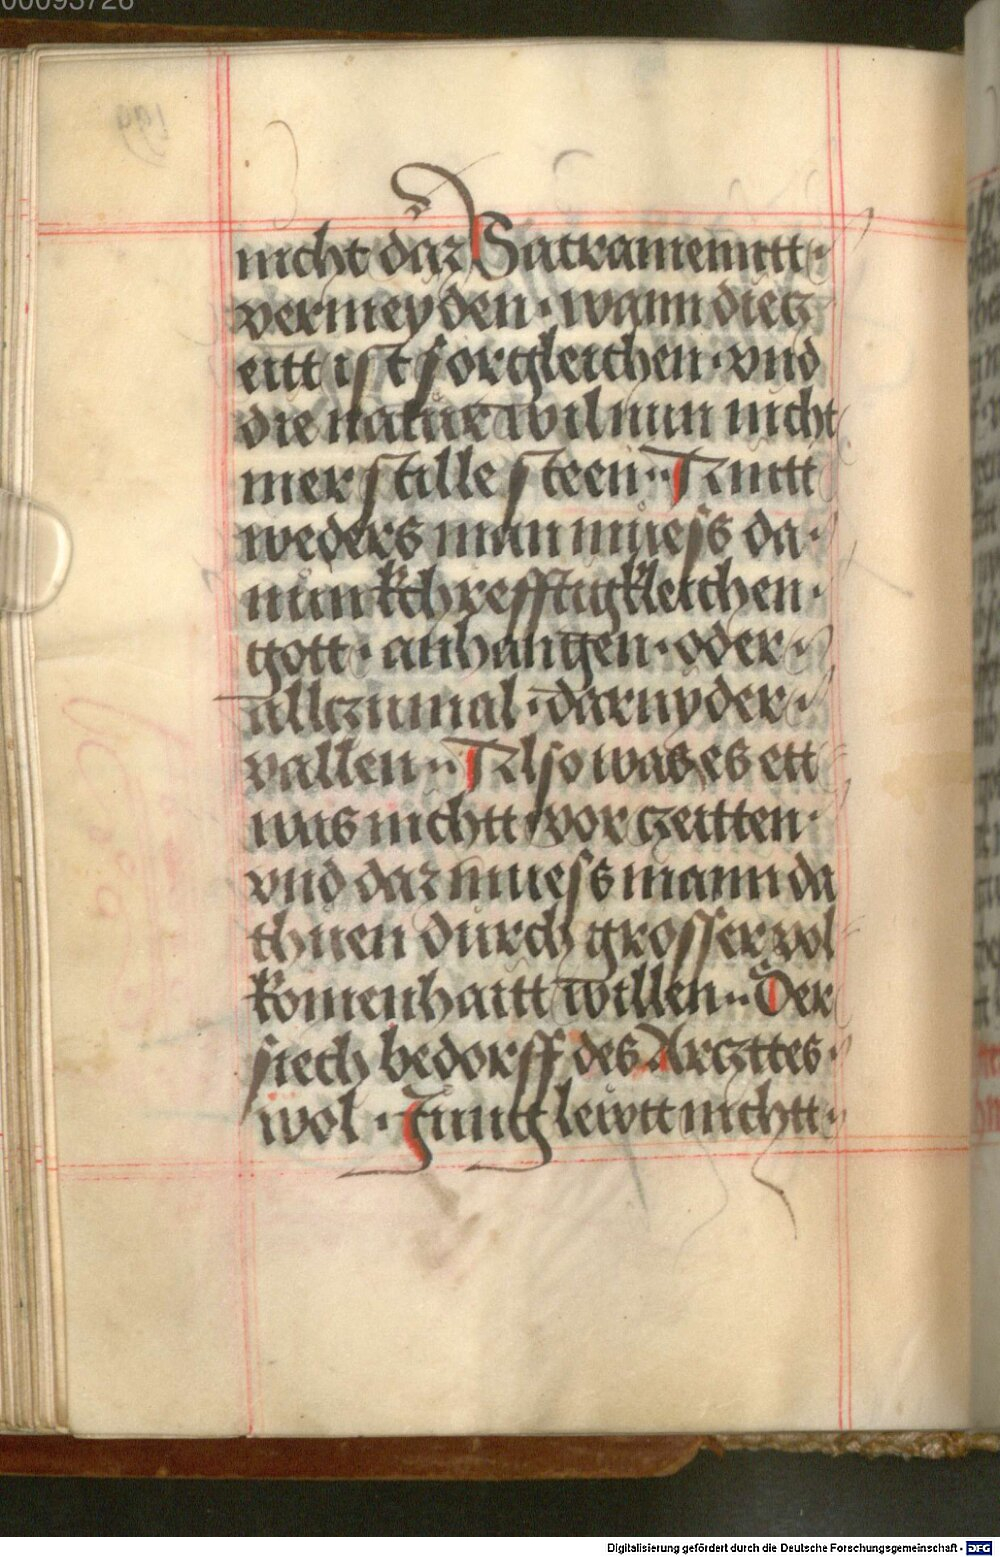 00093726
nicht daz Sacramenntt·
vermeyden· wann dietz
eitt ist sorgleichen· vnd
die natur wil nun nicht
mer stille steen·· Anntt
weders man muess da·
nun kchrefftigkleichen·
gott· anhangen· oder·
allczumal· darnyder·
vallen·· Also was es ett
was nichtt vor czeitten·
vnd daz muess mann da
thuen durch grosser vol
komenhaitt willen·· Der
siech bedorff des Arczttes·
wol· Jung lewtt nichtt·
Digitalisierung gefördert durch die Deutsche Forschungsgemeinschaft - DFG